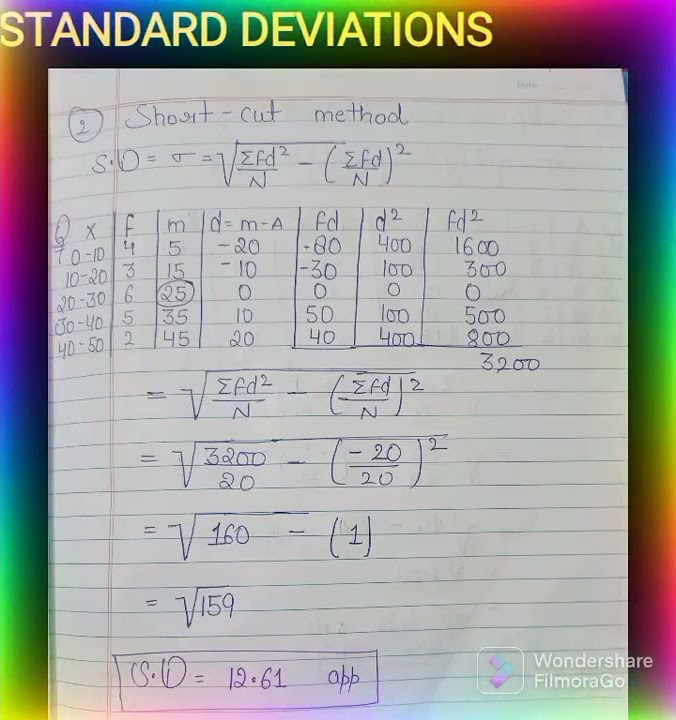 STANDARD DEVIATIONS
Date
2 Short-cut method
S.D = σ = √Σfd²/N - (Σfd/N)²
Q X f m d=m-A fd d² fd²
7 0-10 4 5 -20 -80 400 1600
10-20 3 15 -10 -30 100 300
20-30 6 25 0 0 0 0
30-40 5 35 10 50 100 500
40-50 2 45 20 40 400 800
3200
= √Σfd²/N - (Σfd/N)²
= √3200/20 - (-20/20)²
= √160 - (1)
= √159
S.D = 12.61 app
Wondershare
FilmoraGo